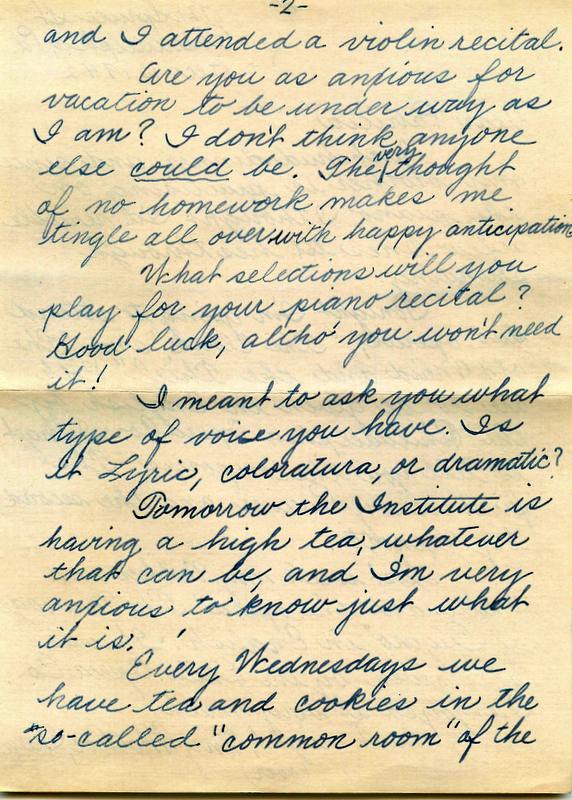 -2-
and I attended a violin recital.
Are you as anxious for
vacation to be under way as
I am? I don't think anyone
else could be. The very thought
of no homework makes me
tingle all over with happy anticipation
What selections will you
play for your piano recital?
Good luck, altho' you won't need
it!
I meant to ask you what
type of voice you have. Is
it Lyric, coloratura, or dramatic?
Tomorrow the Institute is
having a high tea, whatever
that can be, and I'm very
anxious to know just what
it is.
Every Wednesdays we
have tea and cookies in the
"so-called "common room" of the